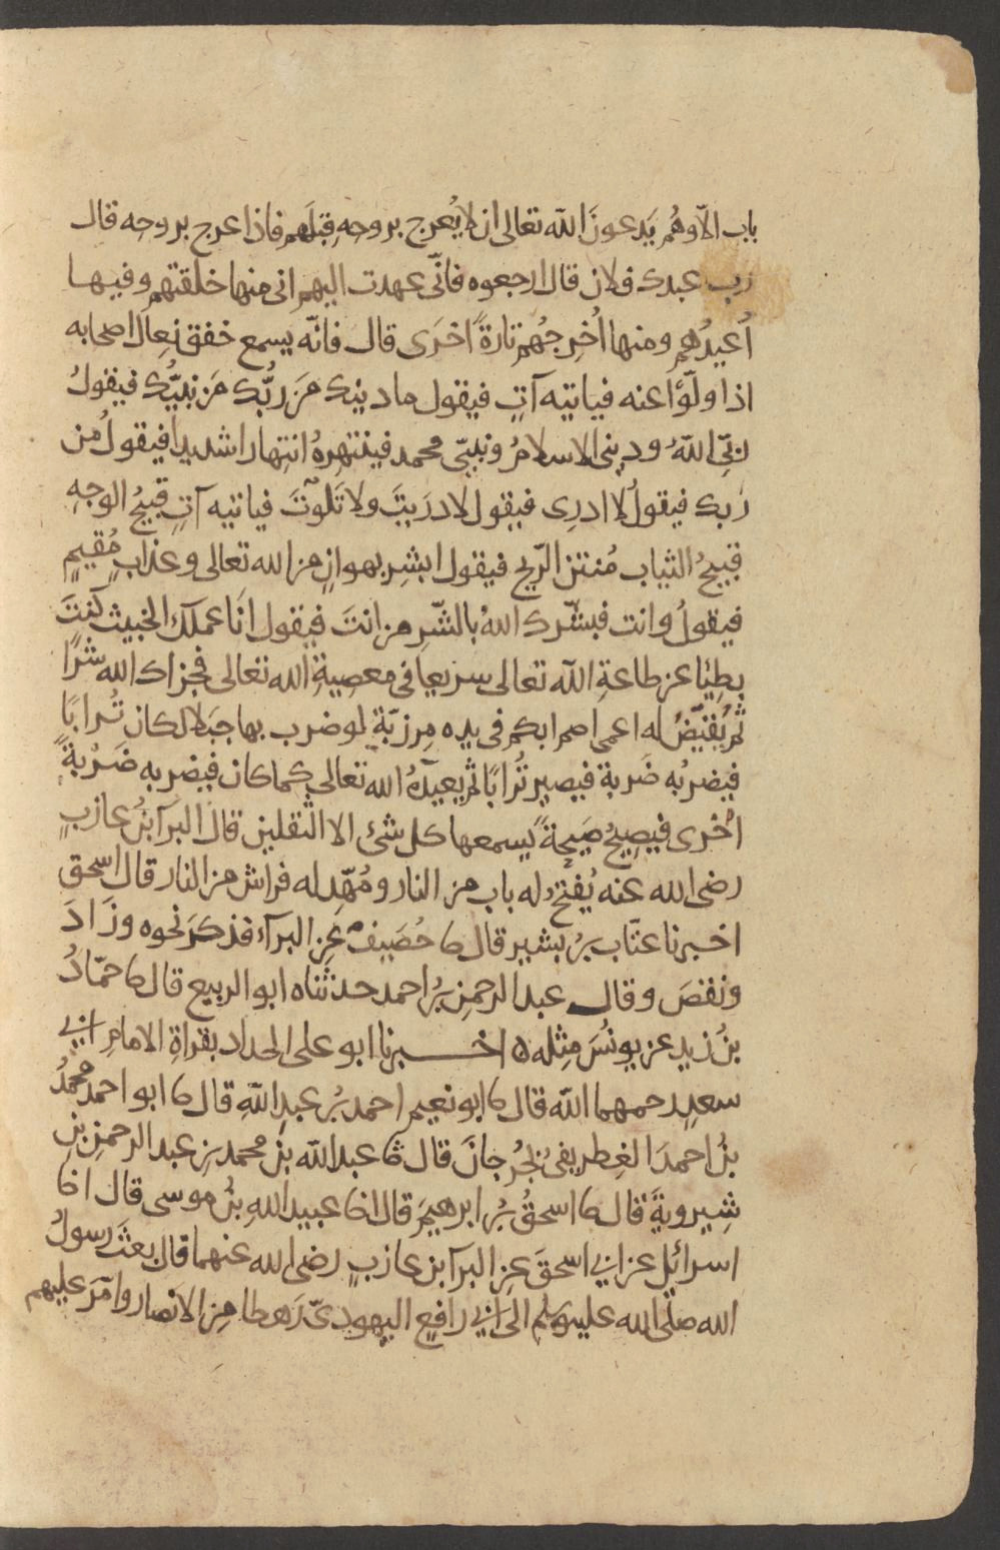 باب الّا وهُم يَدعونَ الله تعالى ان لا يُعرج بروحِهِ قبلَهم فاذا عرج بروحِه قال
رب عبدك فلان قال ارجعوه فانّى عهدت اليهم انى منها خلقتهم وفيها
اُعيدُهم ومنها اُخرِجُهم تارةً اخرَى قال فانّه يسمع خفق نِعال اصحابه
اذا ولّوا عنه فياتيه آتٍ فيقول ما دينك مَن ربُّك مَن نبيُّك فيقولُ
ربّى اللهُ ودينى الاسلامُ ونبيّى محمد فينتهرهُ انتهارا شديدا فيقولُ من
ربك فيقولُ لا ادرِى فيقول لا دريتَ ولا تَلوتَ فياتيه آتٍ قبيحُ الوجهِ
قبيحُ الثياب مُنتن الرّيح فيقول ابشِر بهوانٍ من الله تعالى وعذابٍ مُقيمٍ
فيقولُ وانت فبشّرك اللهُ بالشّرِ من انتَ فيقول انَا عملك الخبيث كنتَ
بطِيًا عن طاعةِ الله تعالى سريعا فى معصِيةِ الله تعالى فجزاك الله شرًا
ثم يُقيَّضُ له اعمى اصم ابكم فى يده مِرزبّة لو ضرب بها جَبَلا لكان تُرابًا
فيضربُه ضَربة فيصير تُرابًا ثم يعيدهُ الله تعالى كما كان فيضربه ضَرْبةً
اُخرى فيصِيحُ صَيحةً يَسمعها كل شئ الا الثقلين قال البرآ بنُ عازبٍ
رضى الله عنه يُفتحُ له باب من النار ومُهّد له فراش من النار قال اسحق
اخبرنا عتّاب بنُ بشير قال ثنا خُصَيفٌ عن البرآء فذكرَ نحوه وزَادَ
ونقصَ وقال عبد الرحمن بنُ احمد حدثناه ابو الربيع قال ثنا حمّادُ
بنُ زيدٍ عن يونُسَ مِثله ه اخــبرنا ابو على الحداد بقراةِ الامامِ ابى
سعدٍ رحمهما الله قال ثنا ابو نعيم احمد بنُ عبدِ اللهِ قال ثنا ابو احمد محمدُ
بنُ احمدَ الغِطريفى بجُرجانَ قال ثنا عبد الله بنُ محمد بن عبد الرحمنِ بنِ
شِيرويةَ قال ثنا اسحقُ بنُ ابرهيمَ قال انا عبيد اللهِ بنُ موسى قال انا
اسرائيل عن ابى اسحقَ عنِ البرآ بن عازبٍ رضى الله عنهما قال بعثَ رسولُ
الله صلى الله عليه وسلم الى ابى رافعٍ اليهودىّ رَهطا مِن الانصار وامّرَ عليهم